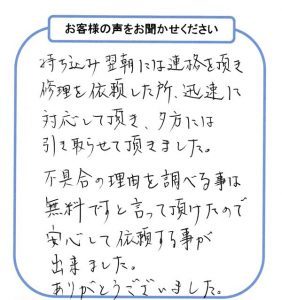 お客様の声をお聞かせください
持ち込み翌朝には連絡を頂き
修理を依頼した所、迅速に
対応して頂き、夕方には
引き取らせて頂きました。
不具合の理由を調べる事は
無料ですと言って頂けたので
安心して依頼する事が
出来ました。
ありがとうございました。